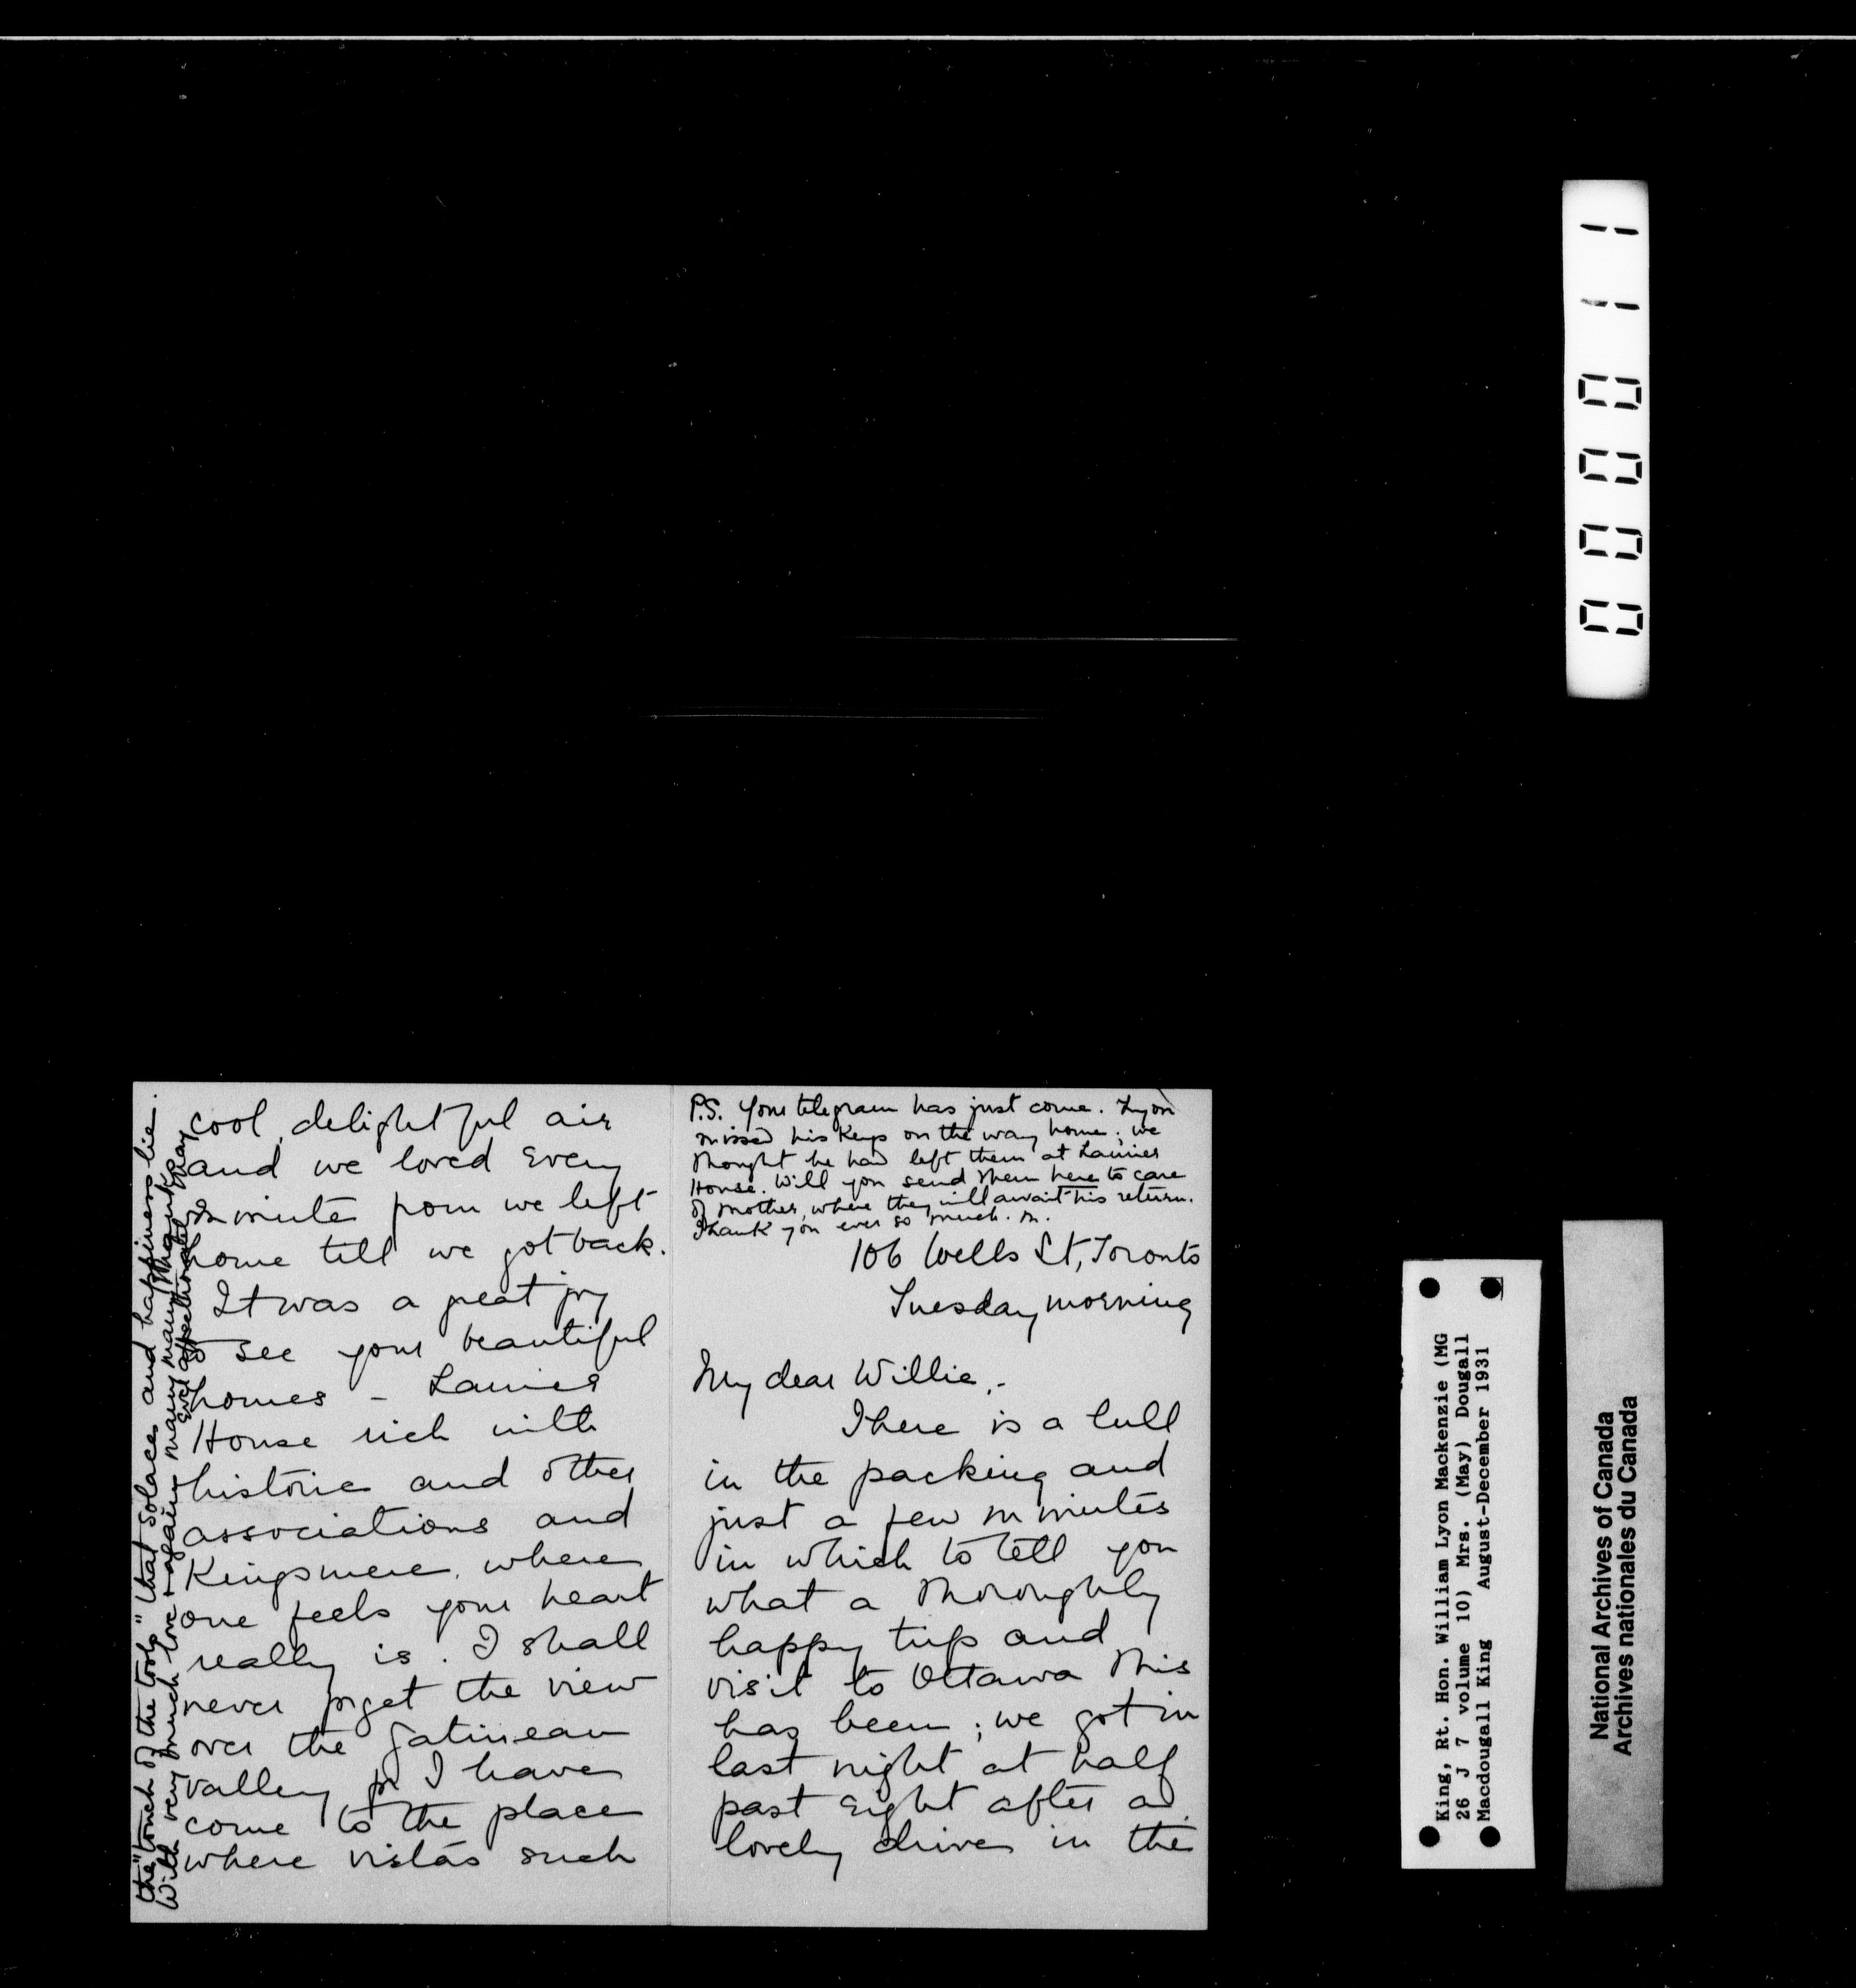 P.S. Your telegram has just come. Lyon
missed his keys on the way home; we
thought he had left them at Laurier
House. Will you send them here to care
of mother, where they will await his return.
Thank you ever so much. M.
106 Wells St, Toronto
Tuesday morning
My dear Willie,-
There is a lull
in the packing and
just a few minutes
in which to tell you
what a thoroughly
happy trip and
visit to Ottawa this
has been; we got in
last night at half
past eight after a
lovely drive in the
cool, delightful air
and we loved every
minute from we left
home till we got back.
It was a great joy
to see your beautiful
homes - Laurier
House rich with
historic and other
associations and
Kingsmere, where
one feels your heart
really is. I shall
never forget the view
over the Gatineau
valley for I have
come to the place
where vistas such
the "touch of the tools" that solaces and happiness lie.
With very much love & again many many thanks,
Ever affectionately, May
000011
King, Rt. Hon. William Lyon Mackenzie (MG
26 J 7 volume 10) Mrs. (May) Dougall
Macdougall King August-December 1931
National Archives of Canada
Archives nationales du Canada